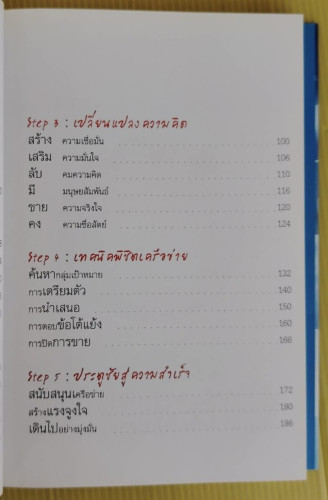 Step 3 : เปลี่ยนแปลงความคิด
สร้าง ความเชื่อมั่น 100
เสริม ความมั่นใจ 106
ลับ คมความคิด 110
มี มนุษยสัมพันธ์ 116
ขาย ความจริงใจ 120
คง ความซื่อสัตย์ 124
Step 4 : เทคนิคพิชิตเครือข่าย
ค้นหากลุ่มเป้าหมาย 132
การเตรียมตัว 140
การนำเสนอ 150
การตอบข้อโต้แย้ง 160
การปิดการขาย 166
Step 5 : ประตูชัยสู่ความสำเร็จ
สนับสนุนเครือข่าย 172
สร้างแรงจูงใจ 180
เดินไปอย่างมุ่งมั่น 186